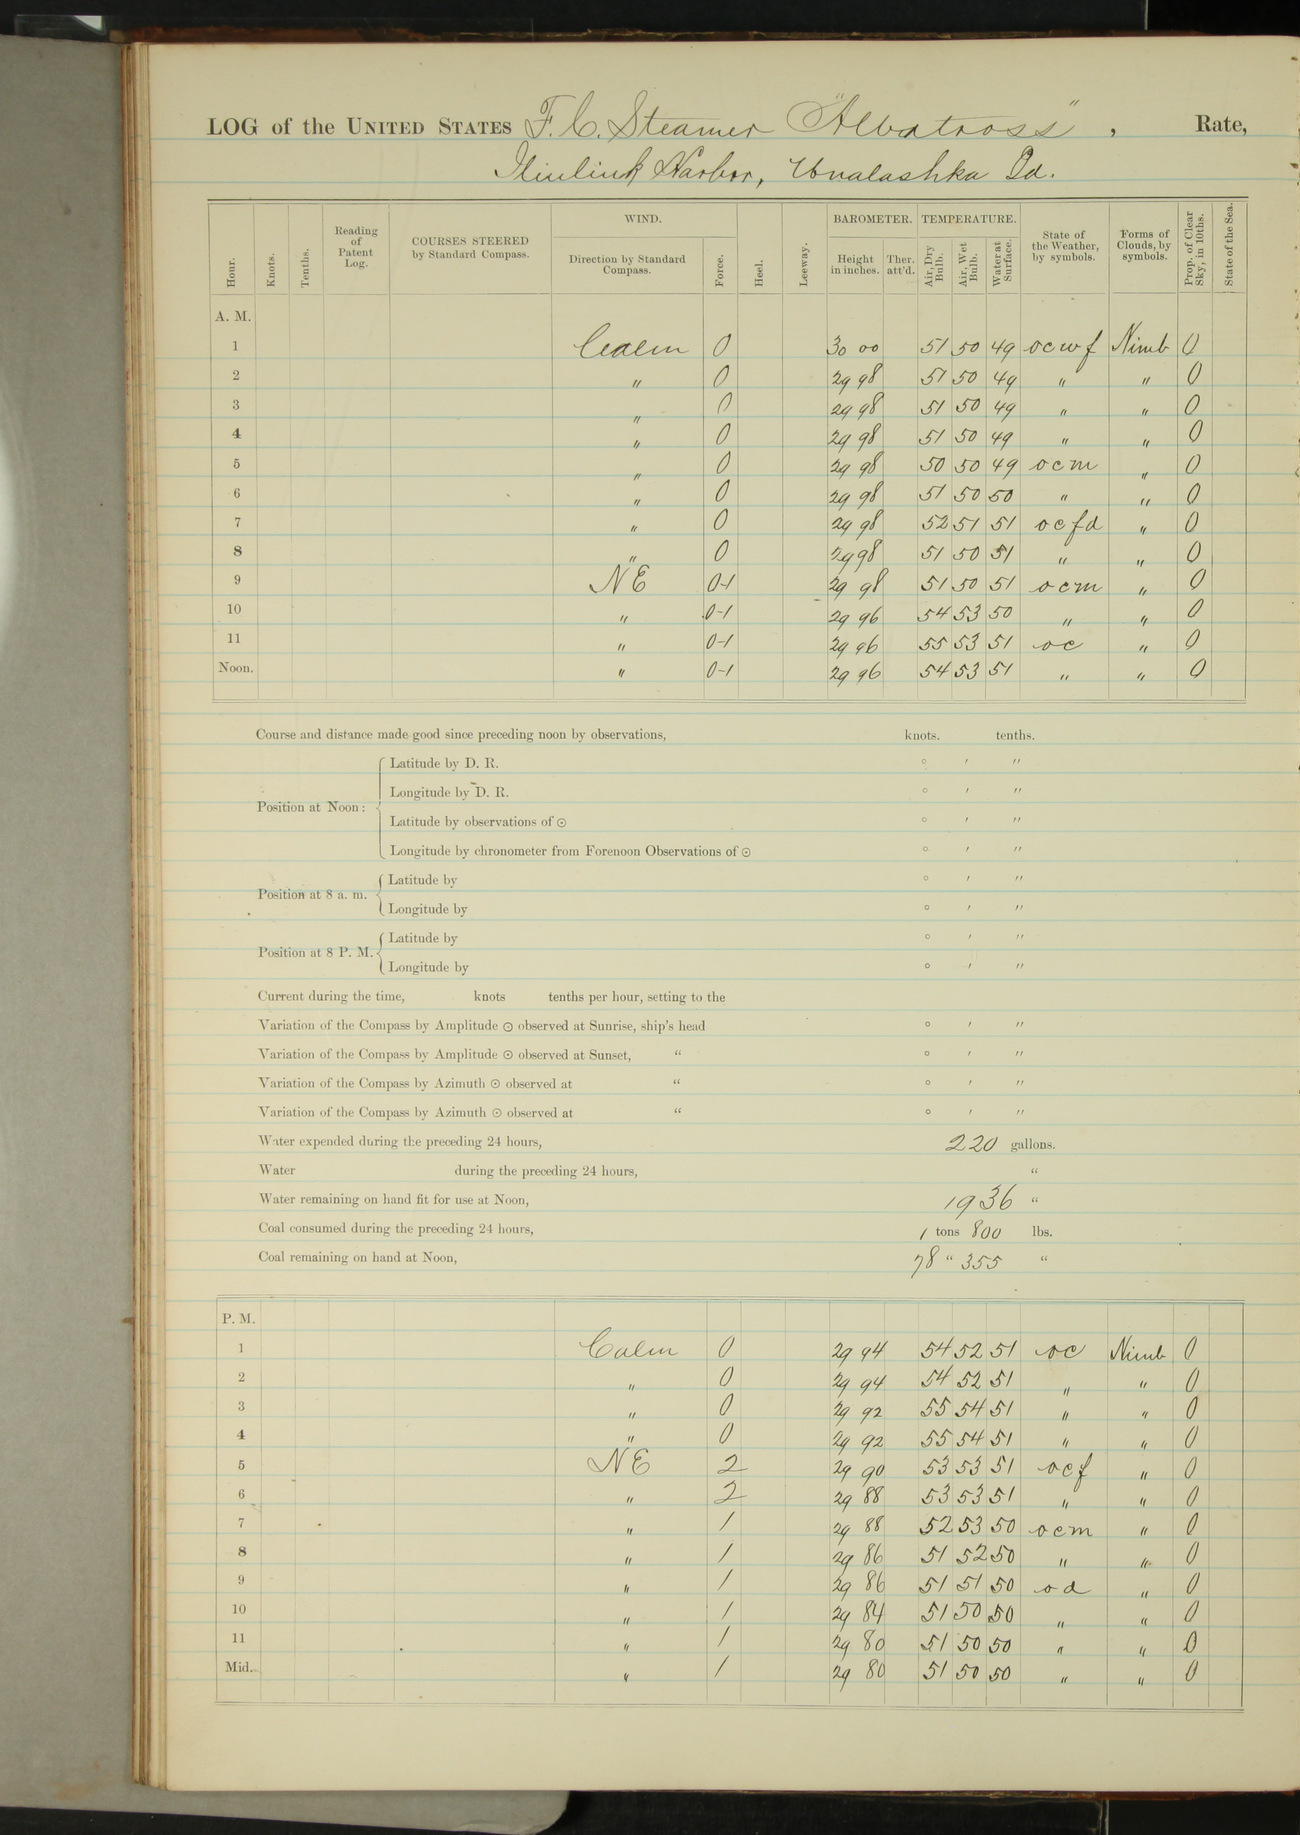 LOG of the UNITED STATES F. C. Steamer "Albatross", Rate,
Iliuliuk Harbor, Unalashka Id.
Hour. Knots. Tenths. Reading of Patent Log. COURSES STEERED by Standard Compass. WIND. Direction by Standard Compass. Force. Heel. Leeway. BAROMETER. Height in inches. Ther. att'd. TEMPERATURE. Air, Dry Bulb. Air, Wet Bulb. Water at Surface. State of the Weather, by symbols. Forms of Clouds, by symbols. Prop. of Clear Sky, in 10ths. State of the Sea.
A. M.
1 Calm 0 30 00 51 50 49 ocwf Nimb 0
2 " 0 29 98 51 50 49 " " 0
3 " 0 29 98 51 50 49 " " 0
4 " 0 29 98 51 50 49 " " 0
5 " 0 29 98 50 50 49 ocm " 0
6 " 0 29 98 51 50 50 " " 0
7 " 0 29 98 52 51 51 ocfd " 0
8 " 0 29 98 51 50 51 " " 0
9 NE 0-1 29 98 51 50 51 ocm " 0
10 " 0-1 29 96 54 53 50 " " 0
11 " 0-1 29 96 55 53 51 oc " 0
Noon. " 0-1 29 96 54 53 51 " " 0
Course and distance made good since preceding noon by observations, knots. tenths.
Position at Noon:
Latitude by D. R. ° ′ ″
Longitude by D. R. ° ′ ″
Latitude by observations of ☉ ° ′ ″
Longitude by chronometer from Forenoon Observations of ☉ ° ′ ″
Position at 8 a. m.
Latitude by ° ′ ″
Longitude by ° ′ ″
Position at 8 P. M.
Latitude by ° ′ ″
Longitude by ° ′ ″
Current during the time, knots tenths per hour, setting to the
Variation of the Compass by Amplitude ☉ observed at Sunrise, ship's head ° ′ ″
Variation of the Compass by Amplitude ☉ observed at Sunset, " ° ′ ″
Variation of the Compass by Azimuth ☉ observed at " ° ′ ″
Variation of the Compass by Azimuth ☉ observed at " ° ′ ″
Water expended during the preceding 24 hours, 220 gallons.
Water during the preceding 24 hours, "
Water remaining on hand fit for use at Noon, 1936 "
Coal consumed during the preceding 24 hours, 1 tons 800 lbs.
Coal remaining on hand at Noon, 78 " 355 "
P. M.
1 Calm 0 29 94 54 52 51 oc Nimb 0
2 " 0 29 94 54 52 51 " " 0
3 " 0 29 92 55 54 51 " " 0
4 " 0 29 92 55 54 51 " " 0
5 NE 2 29 90 53 53 51 ocf " 0
6 " 2 29 88 53 53 51 " " 0
7 " 1 29 88 52 53 50 ocm " 0
8 " 1 29 86 51 52 50 " " 0
9 " 1 29 86 51 51 50 od " 0
10 " 1 29 84 51 50 50 " " 0
11 " 1 29 80 51 50 50 " " 0
Mid. " 1 29 80 51 50 50 " " 0